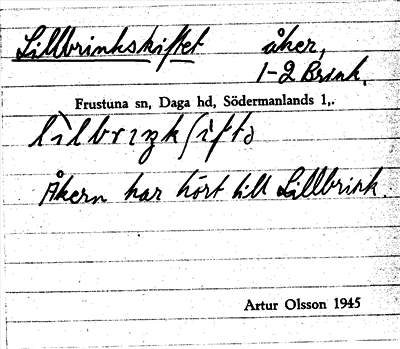 Lillbrinkskiftet åker,
1-2 Brink.
Frustuna sn, Daga hd, Södermanlands l,.
Åkern har hört till Lillbrink.
Artur Olsson 1945